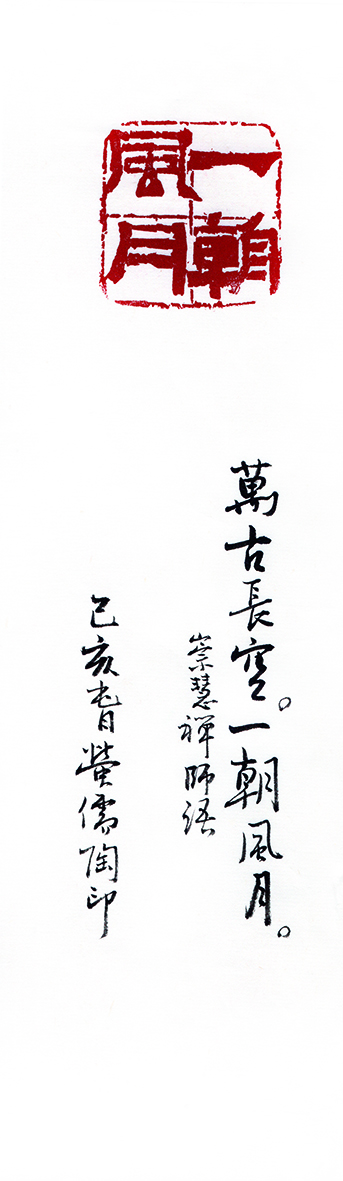 一朝
風月
萬古長空。一朝風月。
崇慧禪師語
己亥旾螢儒陶印